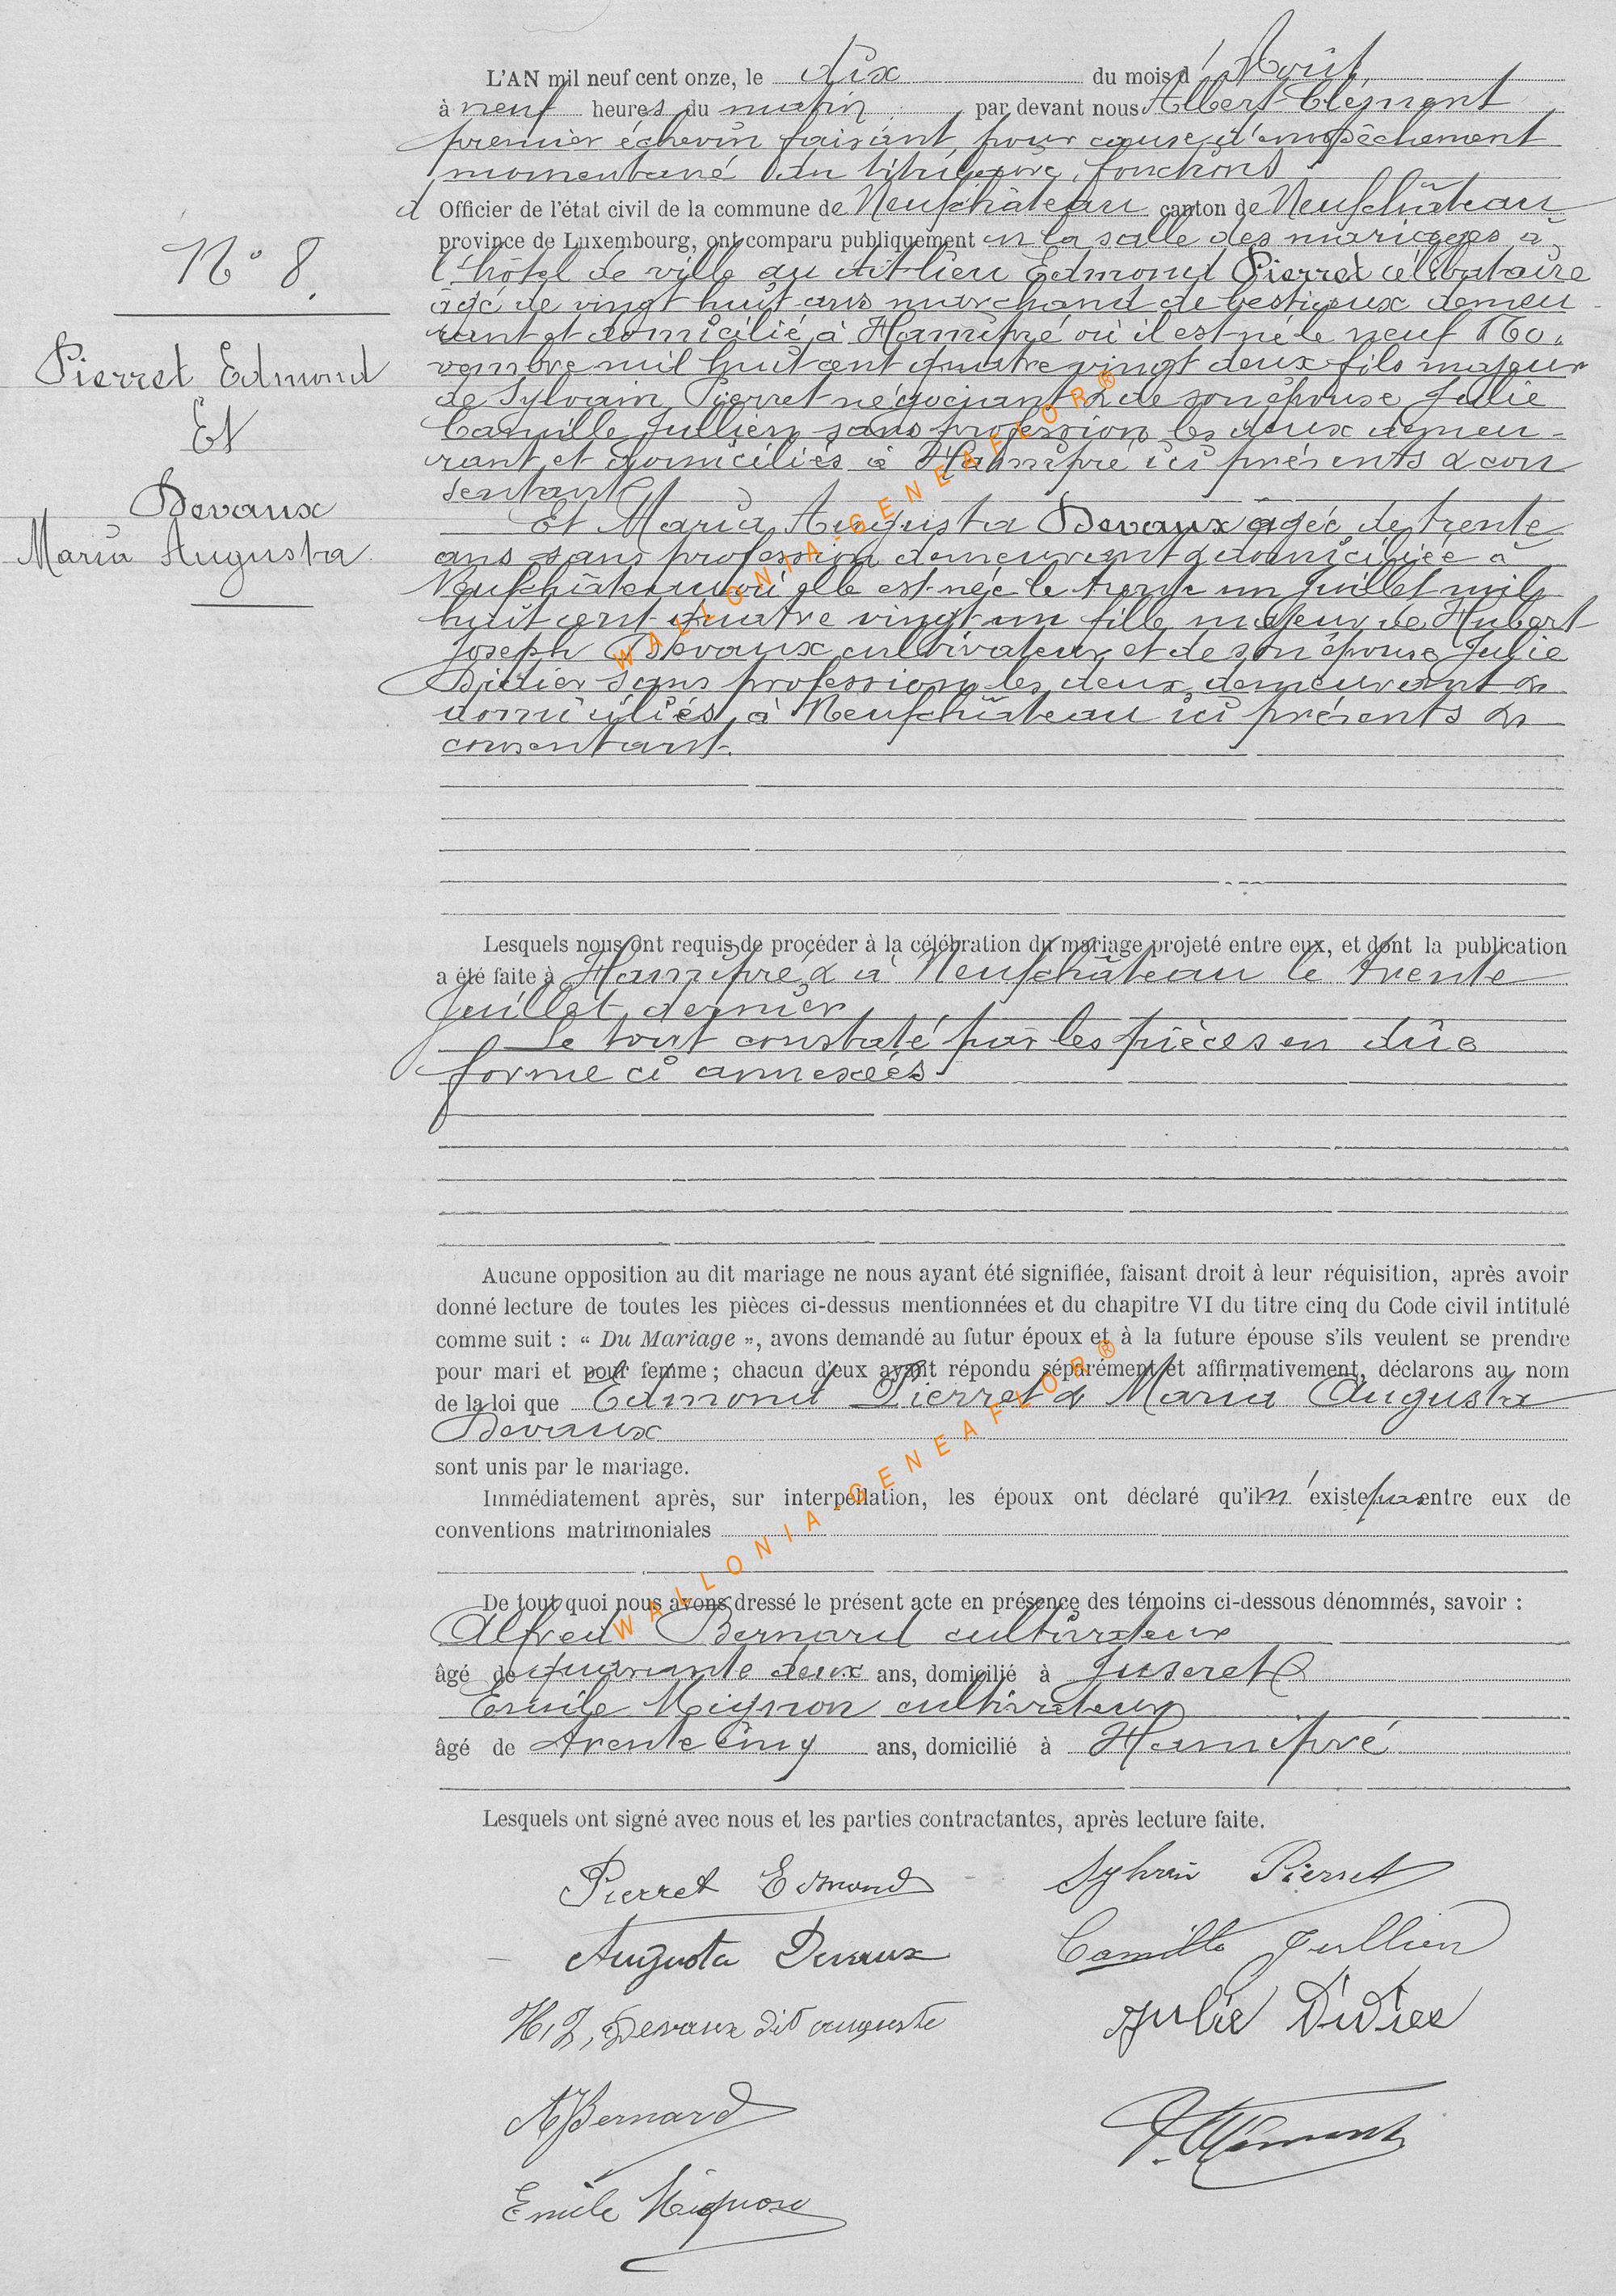 L'AN mil neuf cent onze, le dix du mois d'Août
à neuf heures du matin par devant nous Albert Clément
premier échevin faisant, pour cause d'empêchement
momentané du titulaire, fonctions
d'Officier de l'état civil de la commune de Neufchâteau canton de Neufchâteau
province de Luxembourg, ont comparu publiquement en la salle des mariages à
N° 8.
l'hôtel de ville au dit lieu Edmond Pierret célibataire
âgé de vingt huit ans marchand de bestiaux demeu-
rant et domicilié à Hamipré où il est né le neuf No-
Pierret Edmond
Et
Devaux
Maria Augusta
vembre mil huit cent quatre vingt deux fils majeur
de Sylvain Pierret négociant & de son épouse Julie
Camille Jullien sans profession les deux demeu-
rant et domiciliés à Hamipré ici présents & con
sentant
Et Maria Augusta Devaux âgée de trente
ans sans profession demeurant & domiciliée à
Neufchâteau où elle est née le trente un juillet mil
huit cent quatre vingt un fille majeur de Hubert
Joseph Devaux cultivateur et de son épouse Julie
Didier sans profession les deux demeurant &
domiciliés à Neufchâteau ici présents &
consentant.
Lesquels nous ont requis de procéder à la célébration du mariage projeté entre eux, et dont la publication
a été faite à Hamipré & à Neufchâteau le trente
Juillet dernier
Le tout constaté par les pièces en dûe
forme ci annexées
Aucune opposition au dit mariage ne nous ayant été signifiée, faisant droit à leur réquisition, après avoir
donné lecture de toutes les pièces ci-dessus mentionnées et du chapitre VI du titre cinq du Code civil intitulé
comme suit : « Du Mariage », avons demandé au futur époux et à la future épouse s'ils veulent se prendre
pour mari et pour femme ; chacun d'eux ayant répondu séparément et affirmativement, déclarons au nom
de la loi que Edmond Pierret & Maria Augusta
Devaux
sont unis par le mariage.
Immédiatement après, sur interpellation, les époux ont déclaré qu'il n'existe pas entre eux de
conventions matrimoniales
De tout quoi nous avons dressé le présent acte en présence des témoins ci-dessous dénommés, savoir :
Alfred Bernard cultivateur
âgé de quarante deux ans, domicilié à Juseret
Emile Mignon cultivateur
âgé de trente cinq ans, domicilié à Hamipré
Lesquels ont signé avec nous et les parties contractantes, après lecture faite.
Pierret Edmond Sylvain Pierret
Augusta Devaux Camille Jullien
H, J, Devaux dit auguste Julie Didier
A Bernard Clément
Emile Mignon
WALLONIA-GENEAFLOR®
WALLONIA-GENEAFLOR®